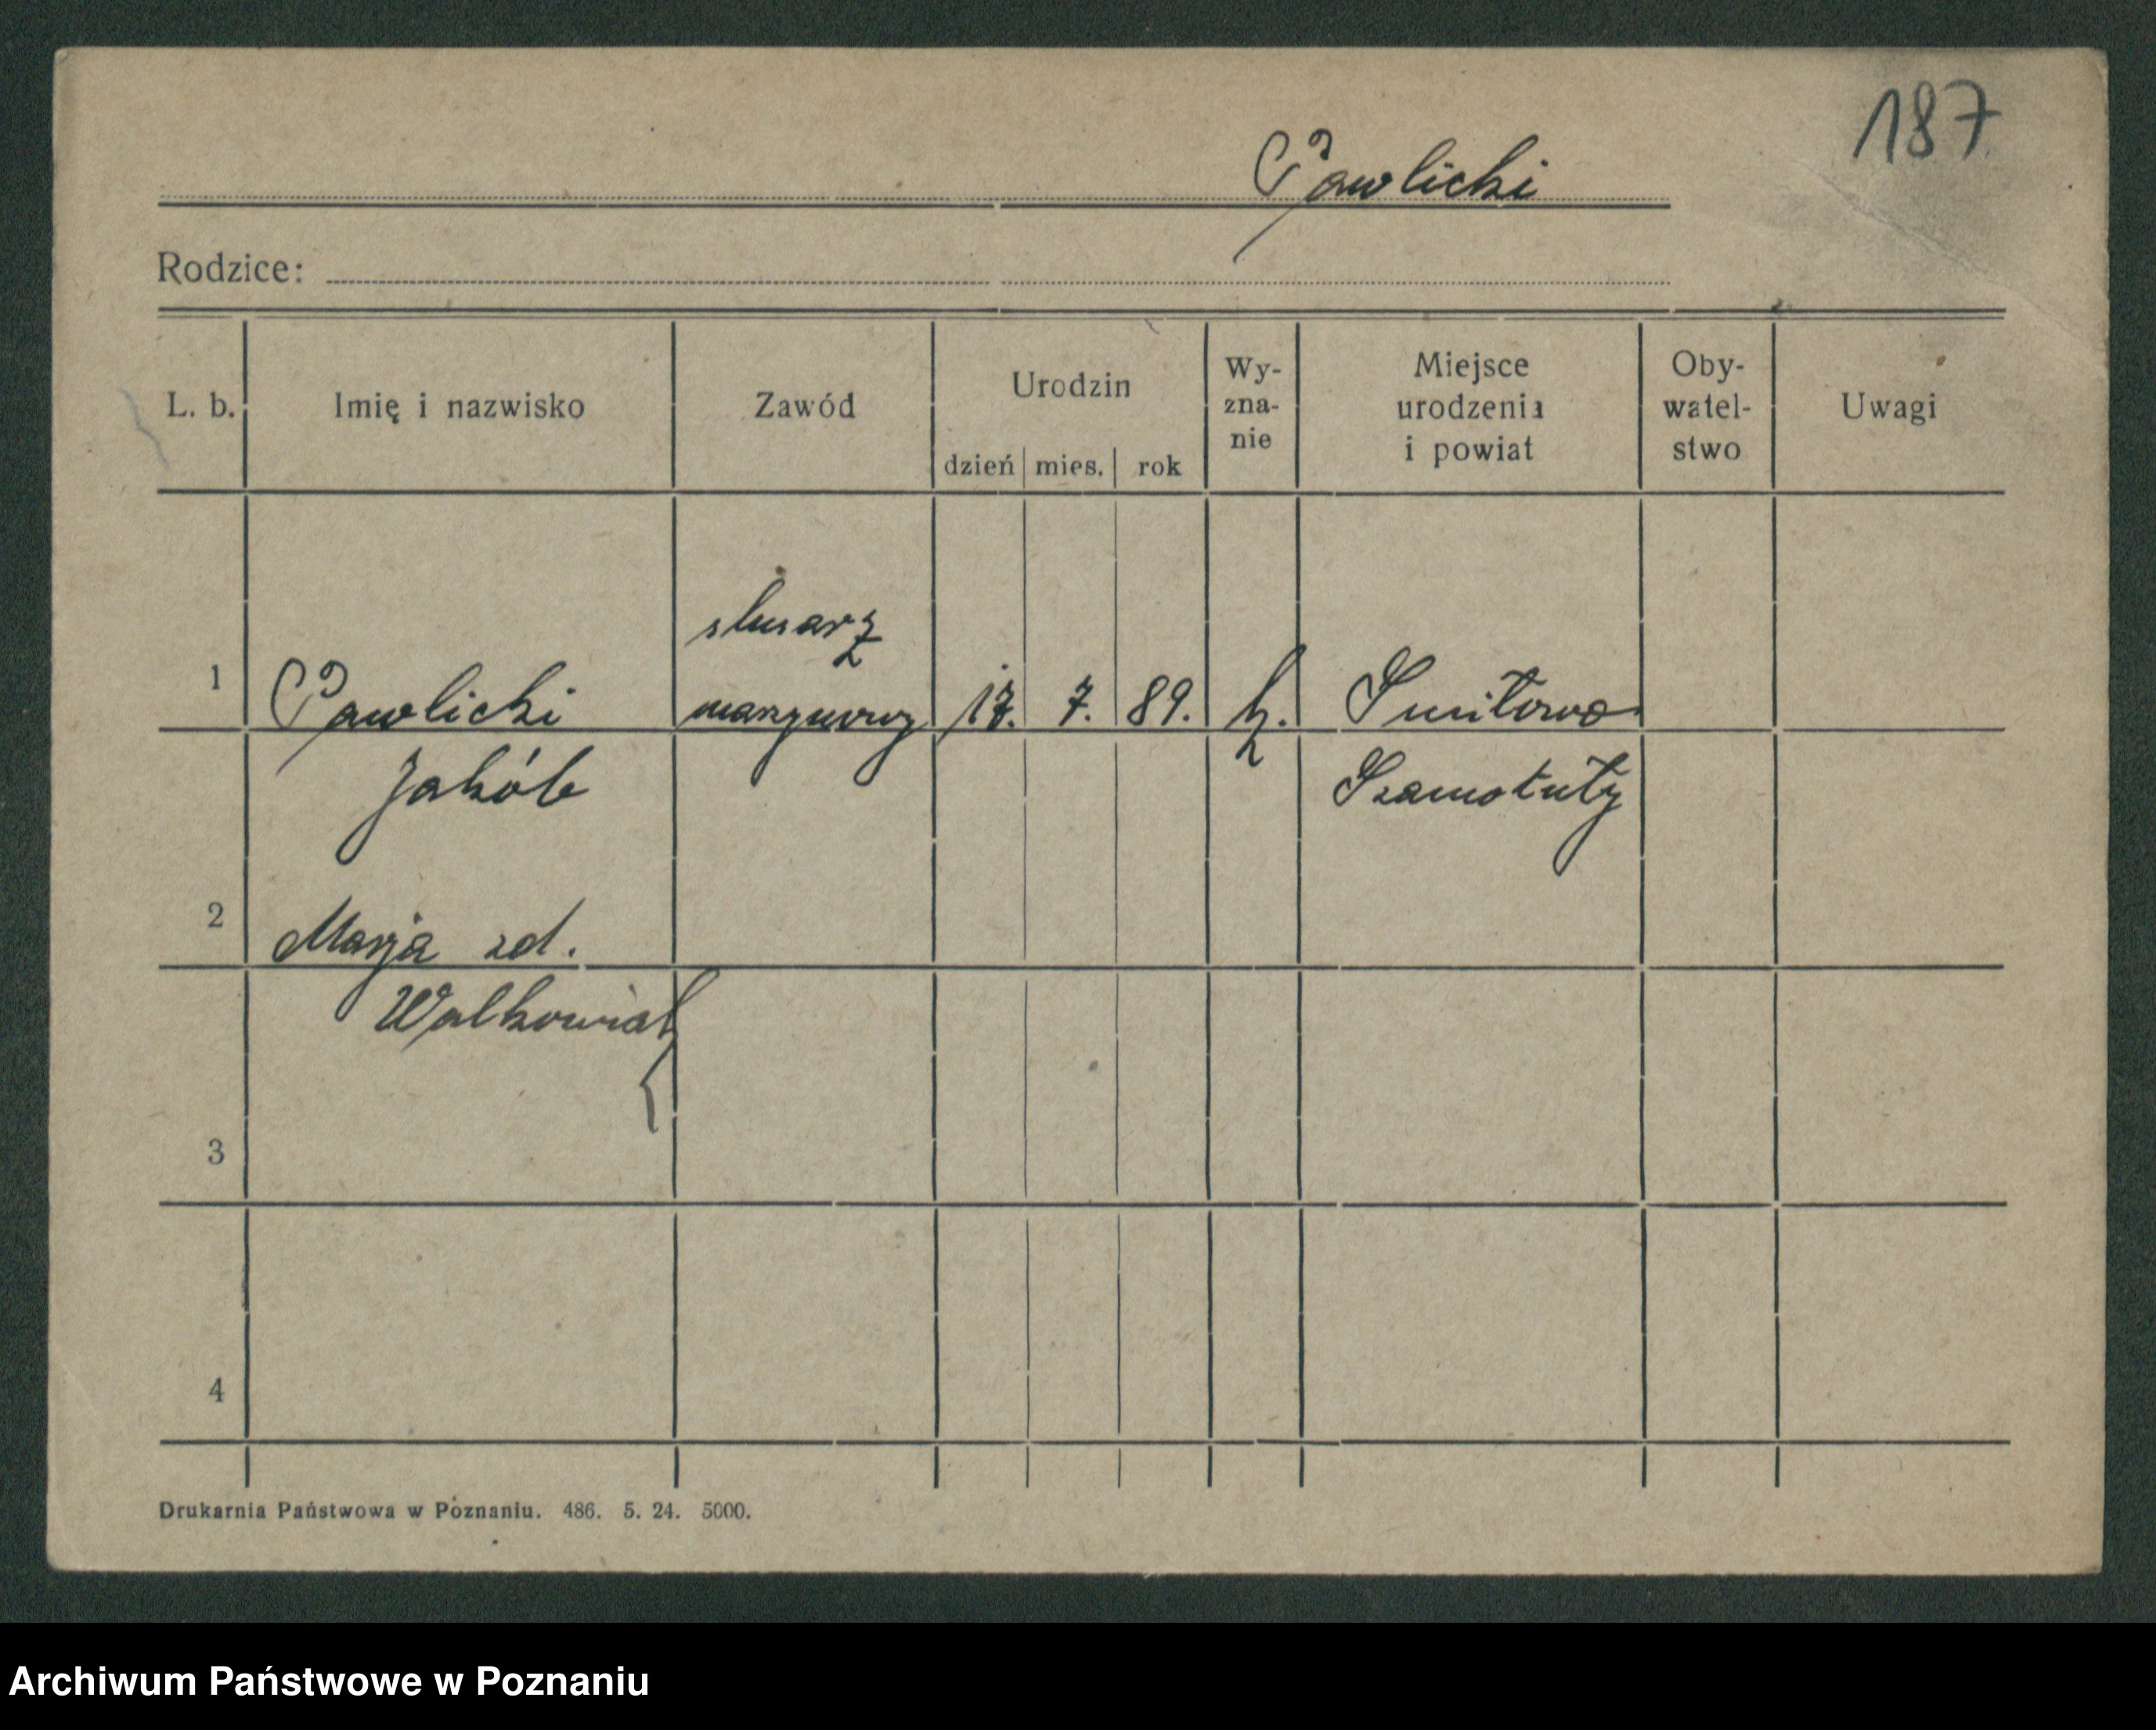 187
Pawlicki
Rodzice:
L. b. Imię i nazwisko Zawód Urodzin dzień mies. rok Wy-zna-nie Miejsce urodzenia i powiat Oby-watel-stwo Uwagi
ślusarz
1 Pawlicki maszynowy 17. 7. 89. k.
Jakób Szamotuły
2 Marja zd.
Walkowiak
3
4
Drukarnia Państwowa w Poznaniu. 486. 5. 24. 5000.
Archiwum Państwowe w Poznaniu